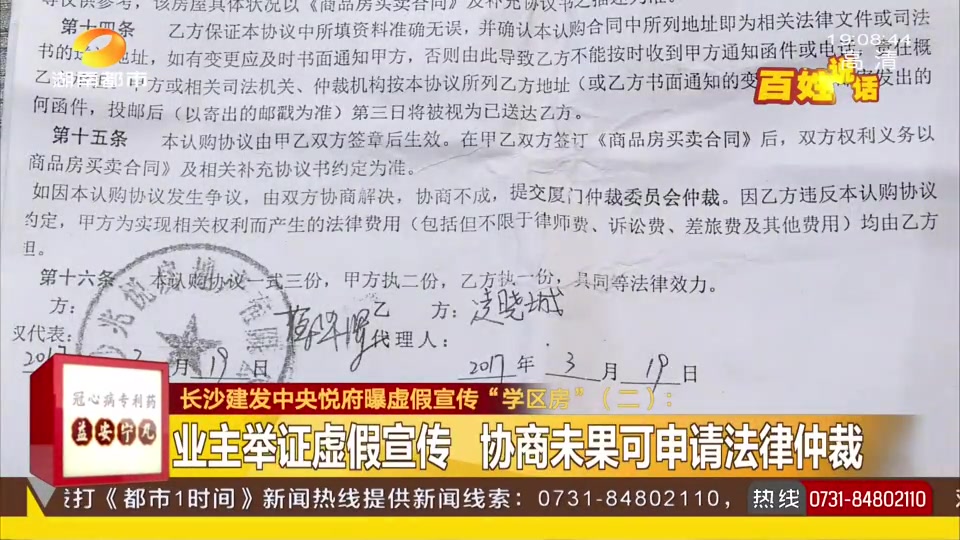 等仅供参考，该房屋具体状况以《商品房买卖合同》及补充协议书之描述为准。
19:08:44
高清
湖南都市
百姓说话
第十四条 乙方保证本协议中所填资料准确无误，并确认本认购合同中所列地址即为相关法律文件或司法
书的 地址，如有变更应及时书面通知甲方，否则由此导致乙方不能按时收到甲方通知函件或电话，责任概
乙 方或相关司法机关、仲裁机构按本协议所列乙方地址（或乙方书面通知的变 发出的
何函件，投邮后（以寄出的邮戳为准）第三日将被视为已送达乙方。
第十五条 本认购协议由甲乙双方签章后生效。在甲乙双方签订《商品房买卖合同》后，双方权利义务以
商品房买卖合同》及相关补充协议书约定为准。
如因本认购协议发生争议，由双方协商解决，协商不成，提交厦门仲裁委员会仲裁。因乙方违反本认购协议
约定，甲方为实现相关权利而产生的法律费用（包括但不限于律师费、诉讼费、差旅费及其他费用）均由乙方
担。
第十六条 本认购协议一式三份，甲方执二份，乙方执一份，具同等法律效力。
方： 乙 方：
权代表： 代理人：
2017 3月19日 2017年3月19日
冠心病专利药
益安宁丸
长沙建发中央悦府曝虚假宣传“学区房”（二）：
业主举证虚假宣传 协商未果可申请法律仲裁
拨打《都市1时间》新闻热线提供新闻线索：0731-84802110，
热线 0731-84802110